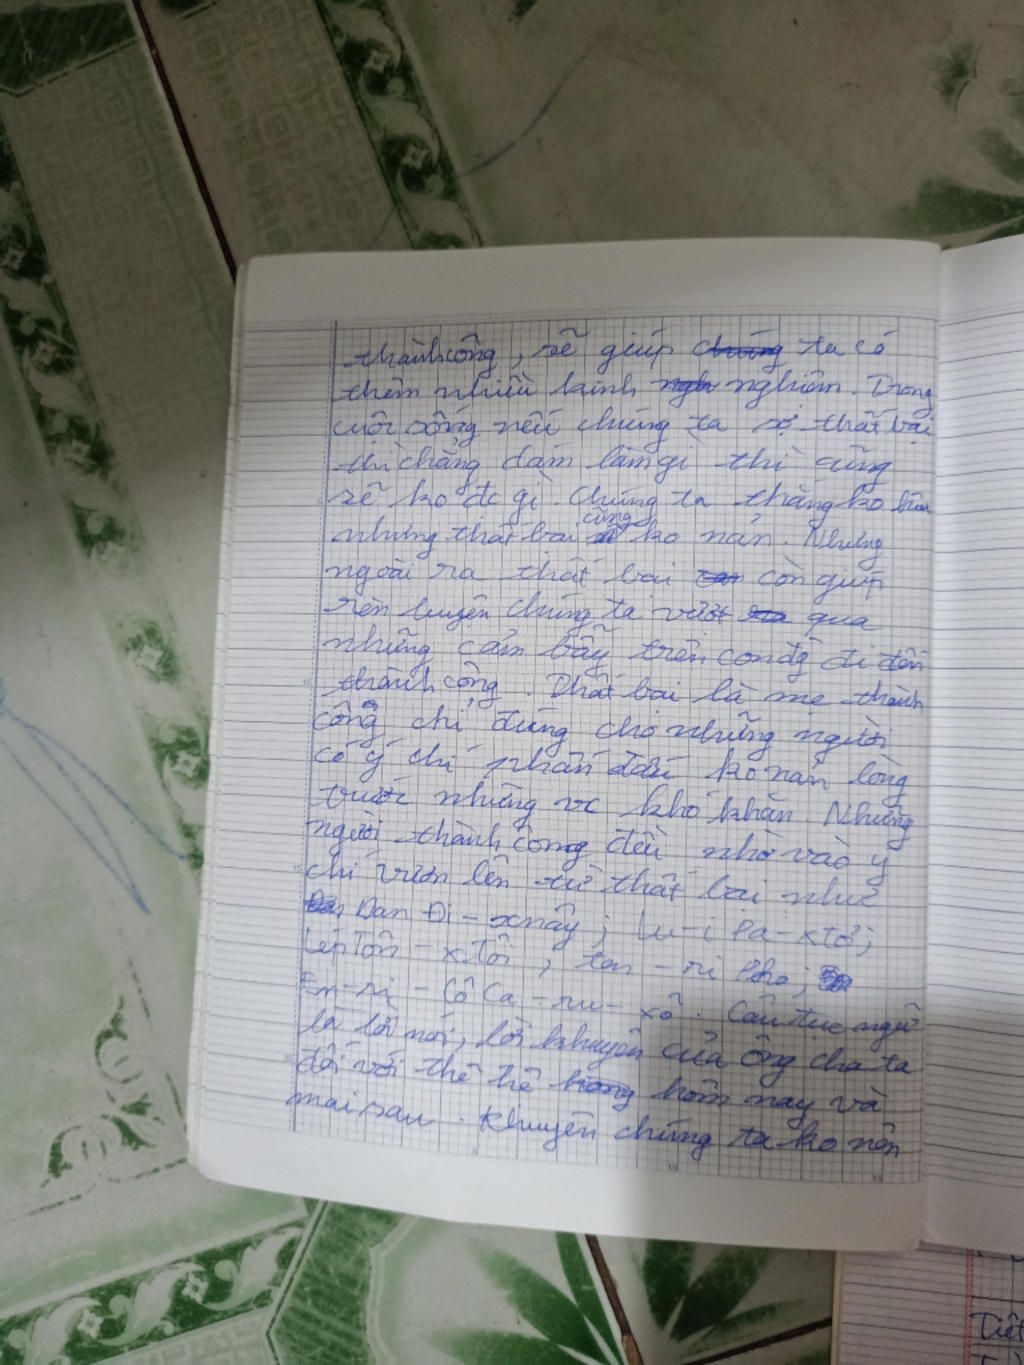 thành công, sẽ giúp chúng ta có
thêm nhiều kinh nghiệm. Trong
cuộc sống nếu chúng ta sợ thất bại
thì chẳng dám làm gì thì cũng
sẽ ko đc gì. Chúng ta thắng ko kiêu
cũng
nhưng thất bại ko nản. Nhưng
ngoài ra thất bại còn giúp
rèn luyện chúng ta vượt qua
những cảm bẫy trên con đg đi đến
thành công. Thất bại là mẹ thành
công chỉ đúng cho những người
có ý chí phấn đấu ko nản lòng
trước những vc khó khăn. Những
người thành công đều nhờ vào ý
chí vươn lên từ thất bại như
Oan Đi-xnây; Lu-i Pa-xtơ;
Lép Tôn-xtôi; hen-ri Pho;
En-ri-cô Ca-ru-xô. Câu tục ngữ
là lời nói, lời khuyên của ông cha ta
đối với thế hệ hôm nay và
mai sau. Khuyên chúng ta ko nên
Tiết